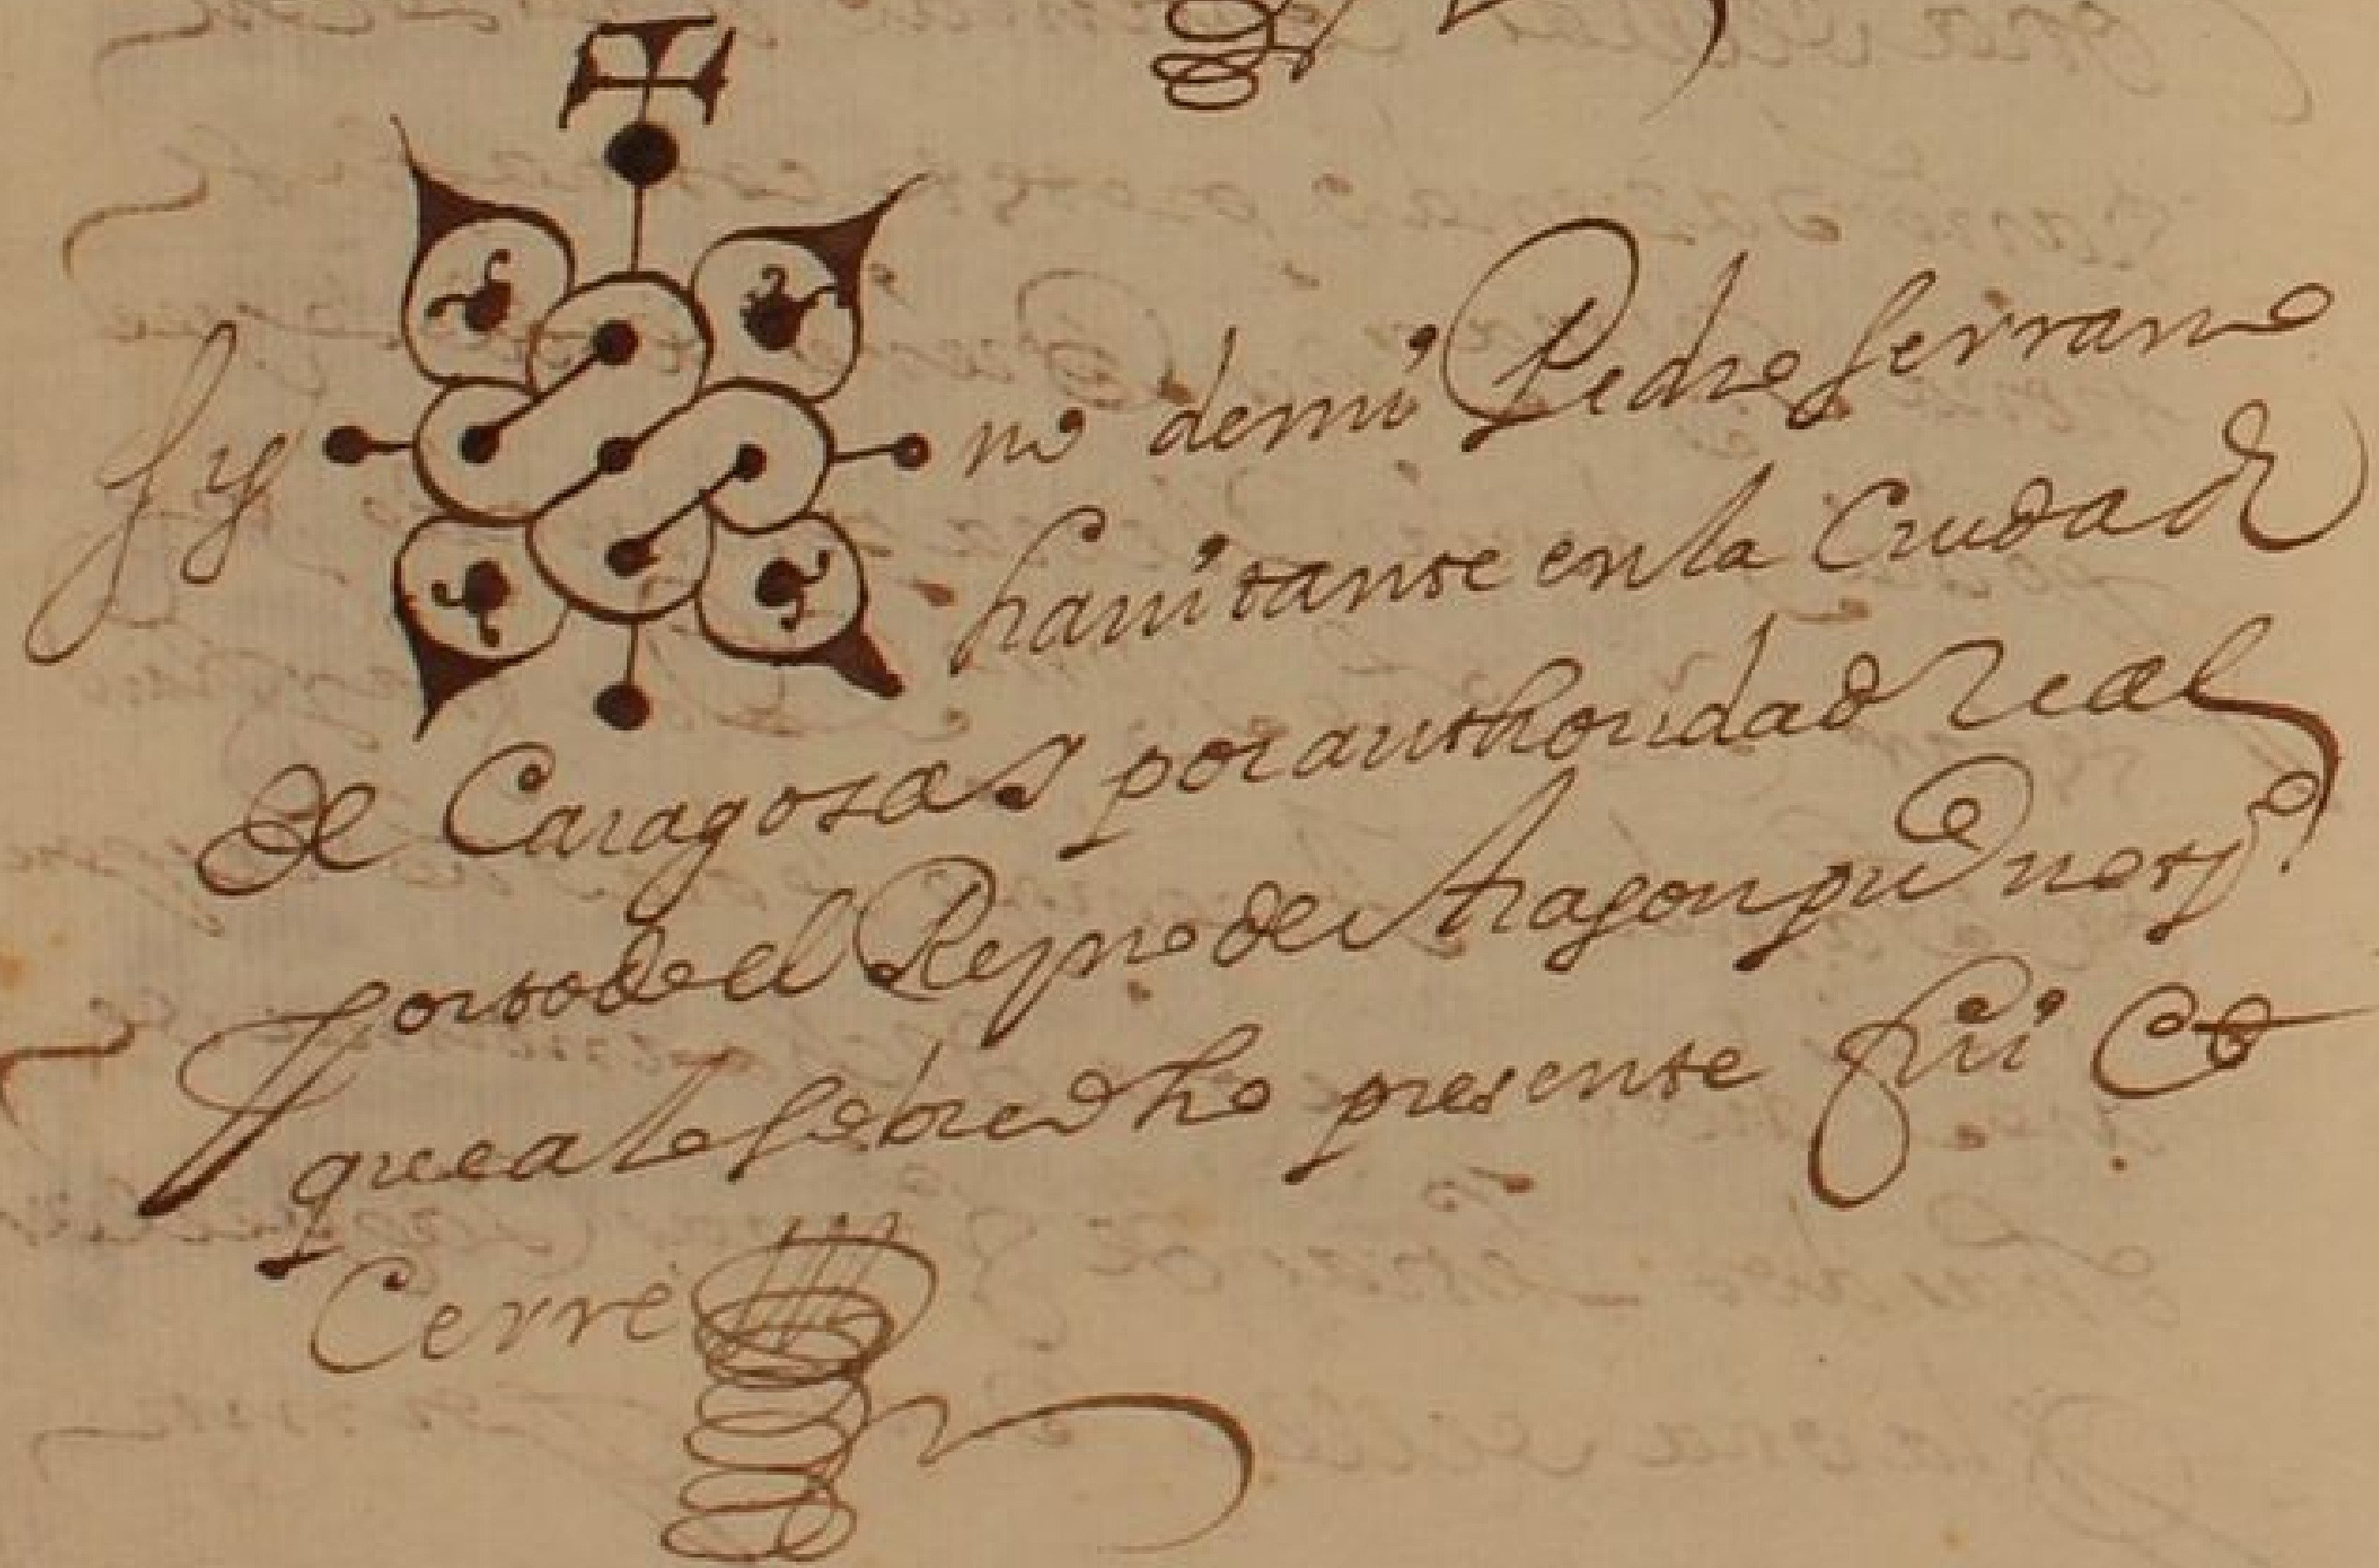 Sig no de mi Pedro Serrano
havitante en la Ciudad
de Caragoza y por authoridad real
por todo el Reyno de Aragon pu.co not.o
que a lo sobredho presente fui Et
Cerré